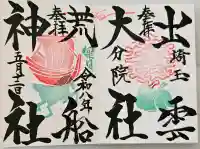 奉拝
出雲
大社
埼玉
分院
奉拝
荒船
神社
令和八年
五月十二日